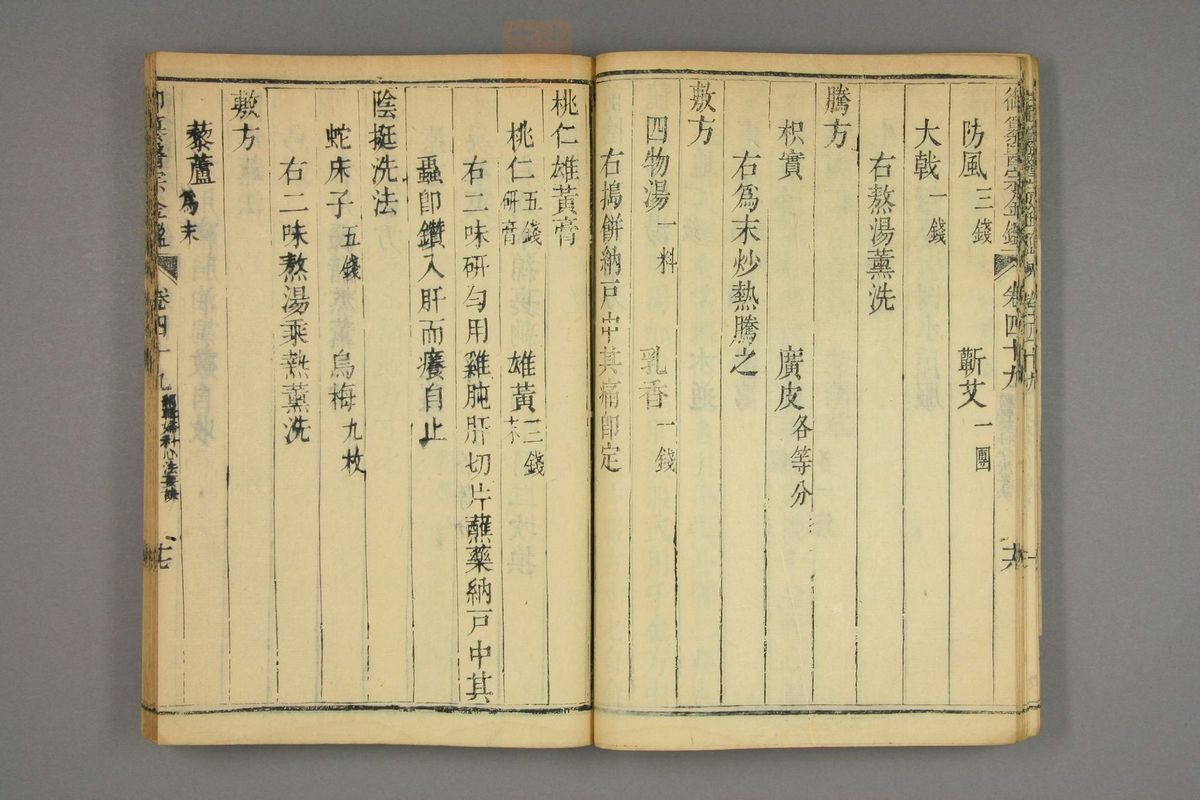 防風三錢 蘄艾一團
大戟一錢
右熬湯薰洗
騰方
枳實 廣皮各等分
右爲末炒熱騰之
敷方
四物湯一料 乳香一錢
右搗餠納戸中其痛卽定
卷四十九
桃仁雄黃膏
桃仁五錢研膏 雄黃三錢末
右二味研勻用雞肫肝切片蘸藥納戸中其
蟲卽鑽入肝而癢自止
陰挺洗法
蛇床子五錢 烏梅九枚
右二味熬湯乘熱薰洗
敷方
藜蘆爲末
卷四十九